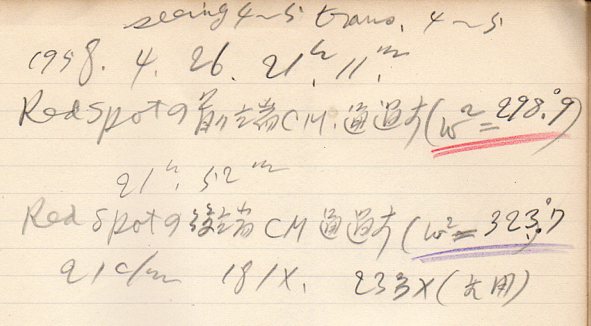 seeing 4~5 trans. 4~5
1958. 4. 26. 21h. 11m.
Red spotの前端CM.通過す(ω²=298.°9)
21h. 52m
Red spotの後端CM通過す(ω²=323.°7
21c/m 181X. 233X(常用)